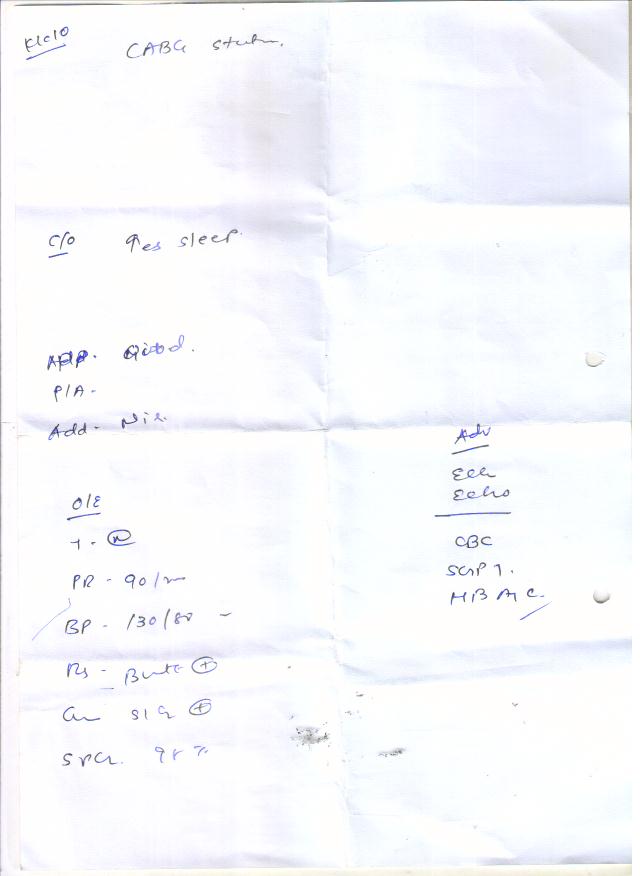 K/C/O CABG status.
C/O ↑es sleep.
App. Good.
P/A -
Add - Nil.
O/E
T - (N)
PR - 90/m
BP - 130/80
RS - (+)
S1S2 (+)
SPO2. 98 %
Adv
ECG
Echo
CBC
SGPT.
HBA1C.